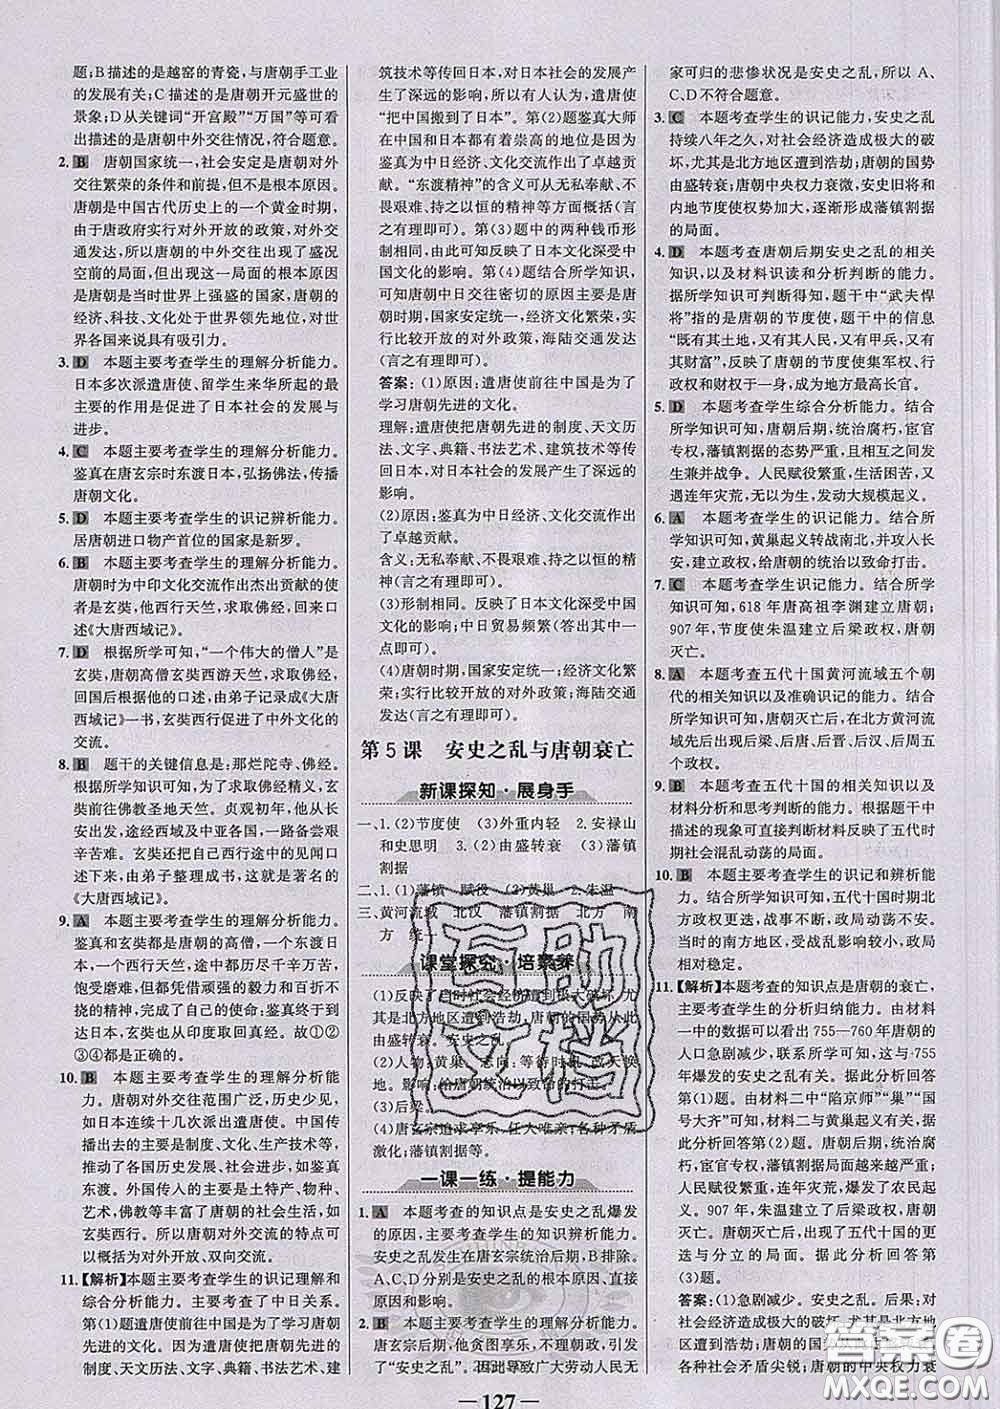 题;B描述的是越窑的青瓷,与唐朝手工业
的发展有关;C描述的是唐朝开元盛世的
景象;D从关键词“开宫殿”“万国”等可看
出描述的是唐朝中外交往情况,符合题意。
2. B 唐朝国家统一,社会安定是唐朝对外
交往繁荣的条件和前提,但不是根本原因。
唐朝是中国古代历史上的一个黄金时期,
由于唐政府实行对外开放的政策,对外交
通发达,所以唐朝的中外交往出现了盛况
空前的局面,但出现这一局面的根本原因
是唐朝是当时世界上强盛的国家,唐朝的
经济、科技、文化处于世界领先地位,对世界
各国来说具有吸引力。
3. D 本题主要考查学生的理解分析能力。
日本多次派遣唐使、留学生来华所起的最
主要的作用是促进了日本社会的发展与
进步。
4. C 本题主要考查学生的理解分析能力。
鉴真在唐玄宗时东渡日本,弘扬佛法,传播
唐朝文化。
5. D 本题主要考查学生的识记辨析能力。
居唐朝进口物产首位的国家是新罗。
6. B 本题主要考查学生的理解分析能力。
唐朝时为中印文化交流作出杰出贡献的使
者是玄奘,他西行天竺,求取佛经,回来口
述《大唐西域记》。
7. D 根据所学可知,“一个伟大的僧人”是
玄奘,唐朝高僧玄奘西游天竺,求取佛经,
回国后根据他的口述,由弟子记录成《大唐
西域记》一书,玄奘西行促进了中外文化的
交流。
8. B 题干的关键信息是:那烂陀寺、佛经。
根据所学知识可知,玄奘为求取佛经精义,
前往佛教圣地天竺。贞观初年,他从长
安出发,途经西域及中亚各国,一路备尝
艰辛苦难。玄奘把西行途中的见闻口述
下来,由弟子整理成书,这就是著名的
《大唐西域记》。
9. A 本题主要考查学生的理解分析能力。
鉴真和玄奘都是唐朝的高僧,一个东渡日
本,一个西行天竺,都是历尽千辛万苦,
饱受磨难,但都凭借顽强的毅力和百折不
挠的精神,完成了自己的使命;鉴真终于到
达日本,玄奘也从印度取回真经。故①②
③④都是正确的。
10. B 本题主要考查学生的理解分析能
力。唐朝对外交往范围广泛,历史久远,
如日本连续十几次派出遣唐使。中国传
播出去的主要是制度、文化、生产技术等,
推动了各国历史发展、社会进步,如鉴真
东渡。外国传入的主要是土特产、物种、
艺术,佛教等丰富了唐朝的社会生活,如
玄奘西行。从唐朝对外交流的特点可以
概括为对外开放、双向交流。
11.【解析】本题主要考查学生的识记理解和
综合分析能力。主要考查了中日关系。
第(1)题遣唐使前往中国是为了学习唐
朝先进的文化。遣唐使把唐朝先进的
制度、天文历法、文字、典籍、书法艺术、建
筑技术等传回日本,对日本社会的发展产
生了深远的影响,所以有人认为,遣唐使
“把中国搬到了日本”。第(2)题鉴真大师
在中国和日本都有着崇高的地位是因为
鉴真为中日经济、文化交流作出了卓越贡
献。“东渡精神”的含义可从无私奉献、不
畏艰难、持之以恒的精神等方面分析(言
之有理即可)。第(3)题中的两种钱币形
制相同,由此可知反映了日本文化深受中
国文化的影响。第(4)题结合所学知识,
可知唐朝中日交往密切的原因主要是唐
朝时期,国家安定统一,经济文化繁荣,实
行比较开放的对外政策,海陆交通发达
(言之有理即可)。
答案:(1)原因:遣唐使前往中国是为了
学习唐朝先进的文化。
理解:遣唐使把唐朝先进的制度、天文历
法、文字、典籍、书法艺术、建筑技术等传
回日本,对日本社会的发展产生了深远的
影响。
(2)原因:鉴真为中日经济、文化交流作出
了卓越贡献。
含义:无私奉献、不畏艰难、持之以恒的精
神(言之有理即可)。
(3)形制相同。反映了日本文化深受中国
文化的影响;中日贸易频繁(答出其中一
点即可)。
(4)唐朝时期,国家安定统一;经济文化繁
荣;实行比较开放的对外政策;海陆交通
发达(言之有理即可)。
第5课 安史之乱与唐朝衰亡
新课探知·展身手
一、1.(2)节度使 (3)外重内轻 2.安禄山
和史思明 3.(2)由盛转衰 (3)藩镇
割据
二、1.(1)藩镇 赋役 (2)黄巢 2.朱温
三、黄河流域 北汉 藩镇割据 北方 南
方 统一
课堂探究·培素养
(1)反映了唐时社会经济遭到极大破坏,尤
其是北方地区遭到浩劫,唐朝的国势从此由
盛转衰。安史之乱。
(2)人物:黄巢。志向:等待时机,改天换
地。影响:给唐朝统治以致命的打击。
(3)后梁。
(4)唐玄宗追求享乐,任人唯亲;各种矛盾
激化;藩镇割据等。
一课一练·提能力
1. A 本题考查的知识点是安史之乱爆发
的原因,主要考查学生的识记辨析能力。
安史之乱发生在唐玄宗统治后期,B排除。
A、C、D分别是安史之乱的根本原因、直接
原因和外部原因。
2. B 本题主要考查学生的理解分析能力。
唐玄宗后期,他贪图享乐,不理朝政,引发
了“安史之乱”,因此导致广大劳动人民无
家可归的悲惨状况是安史之乱,所以A、
C、D不符合题意。
3. C 本题考查学生的识记能力,安史之乱
持续八年之久,对社会经济造成极大的破
坏,尤其是北方地区遭到浩劫;唐朝的国势
由盛转衰;唐朝中央权力衰微,安史旧将和
内地节度使权势加大,逐渐形成藩镇割据
的局面。
4. D 本题考查唐朝后期安史之乱的相关
知识,以及材料识读和分析判断的能力。
据所学知识可判断得知,题干中“武夫悍
将”是唐朝的节度使,题干中的信息
“既有其土地,又有其人民,又有甲兵,又有
其财富”,反映了唐朝的节度使集军权、行
政权和财权于一身,成为地方最高长官。
5. D 本题考查学生综合分析能力。结合
所学知识可知,唐朝后期,统治腐朽,宦官
专权,藩镇割据的态势严重,且相互之间兼
并战争。人民赋役繁重,生活困苦,又
遇连年灾荒,忍无可忍,发动大规模起义。
6. A 本题考查学生的识记能力。结合所
学知识可知,黄巢起义转战南北,并攻入长
安,建立政权,给唐朝的统治以致命打击。
7. C 本题考查学生识记能力。结合所学
知识可知,618年唐高祖李渊建立唐朝;
907年,节度使朱温建立后梁政权,唐朝
灭亡。
8. A 本题考查五代十国黄河流域五个朝
代的相关知识以及准确识记的能力。结合
所学知识可知,唐朝灭亡后,在北方黄河流
域先后出现了后梁、后唐、后晋、后汉、后周五
个政权。
9. B 本题考查五代十国的相关知识以及
材料分析和思考判断的能力。根据题干中
描述的现象可直接判断材料反映了五代时
期社会混乱动荡的局面。
10. B 本题考查学生的识记和辨析能力。
结合所学知识可知,五代十国时期北
方政权更迭,战事不断,政局动荡不安。
当时的南方地区,受战乱影响较小,政局
相对稳定。
11.【解析】本题考查的知识点是唐朝的衰亡,
主要考查学生的分析归纳能力。由材料
一中的数据可以看出755—760年唐朝的
人口急剧减少,联系所学可知,这与755
年爆发的安史之乱有关。据此分析回答
第(1)题。由材料二中“陷京师”“巢”“国
号大齐”可知,此题与黄巢起义有关,据
此分析回答第(2)题。唐朝后期,统治腐
朽,宦官专权,藩镇割据局面严重,人民
生活困苦,又遇连年灾荒,爆发了农民起
义。907年,朱温建立后梁政权,唐朝灭
亡。唐朝灭亡后,出现了五代十国的更
迭与分立的局面。据此分析回答第
(3)题。
答案:(1)急剧减少。安史之乱。后果:对
社会经济造成极大的破坏,尤其是北方地
区遭到浩劫;唐朝的国势由盛转衰,
各种社会矛盾尖锐;唐朝的中央权力衰
— 127 —
互助文档
答案圈
MXQE.COM